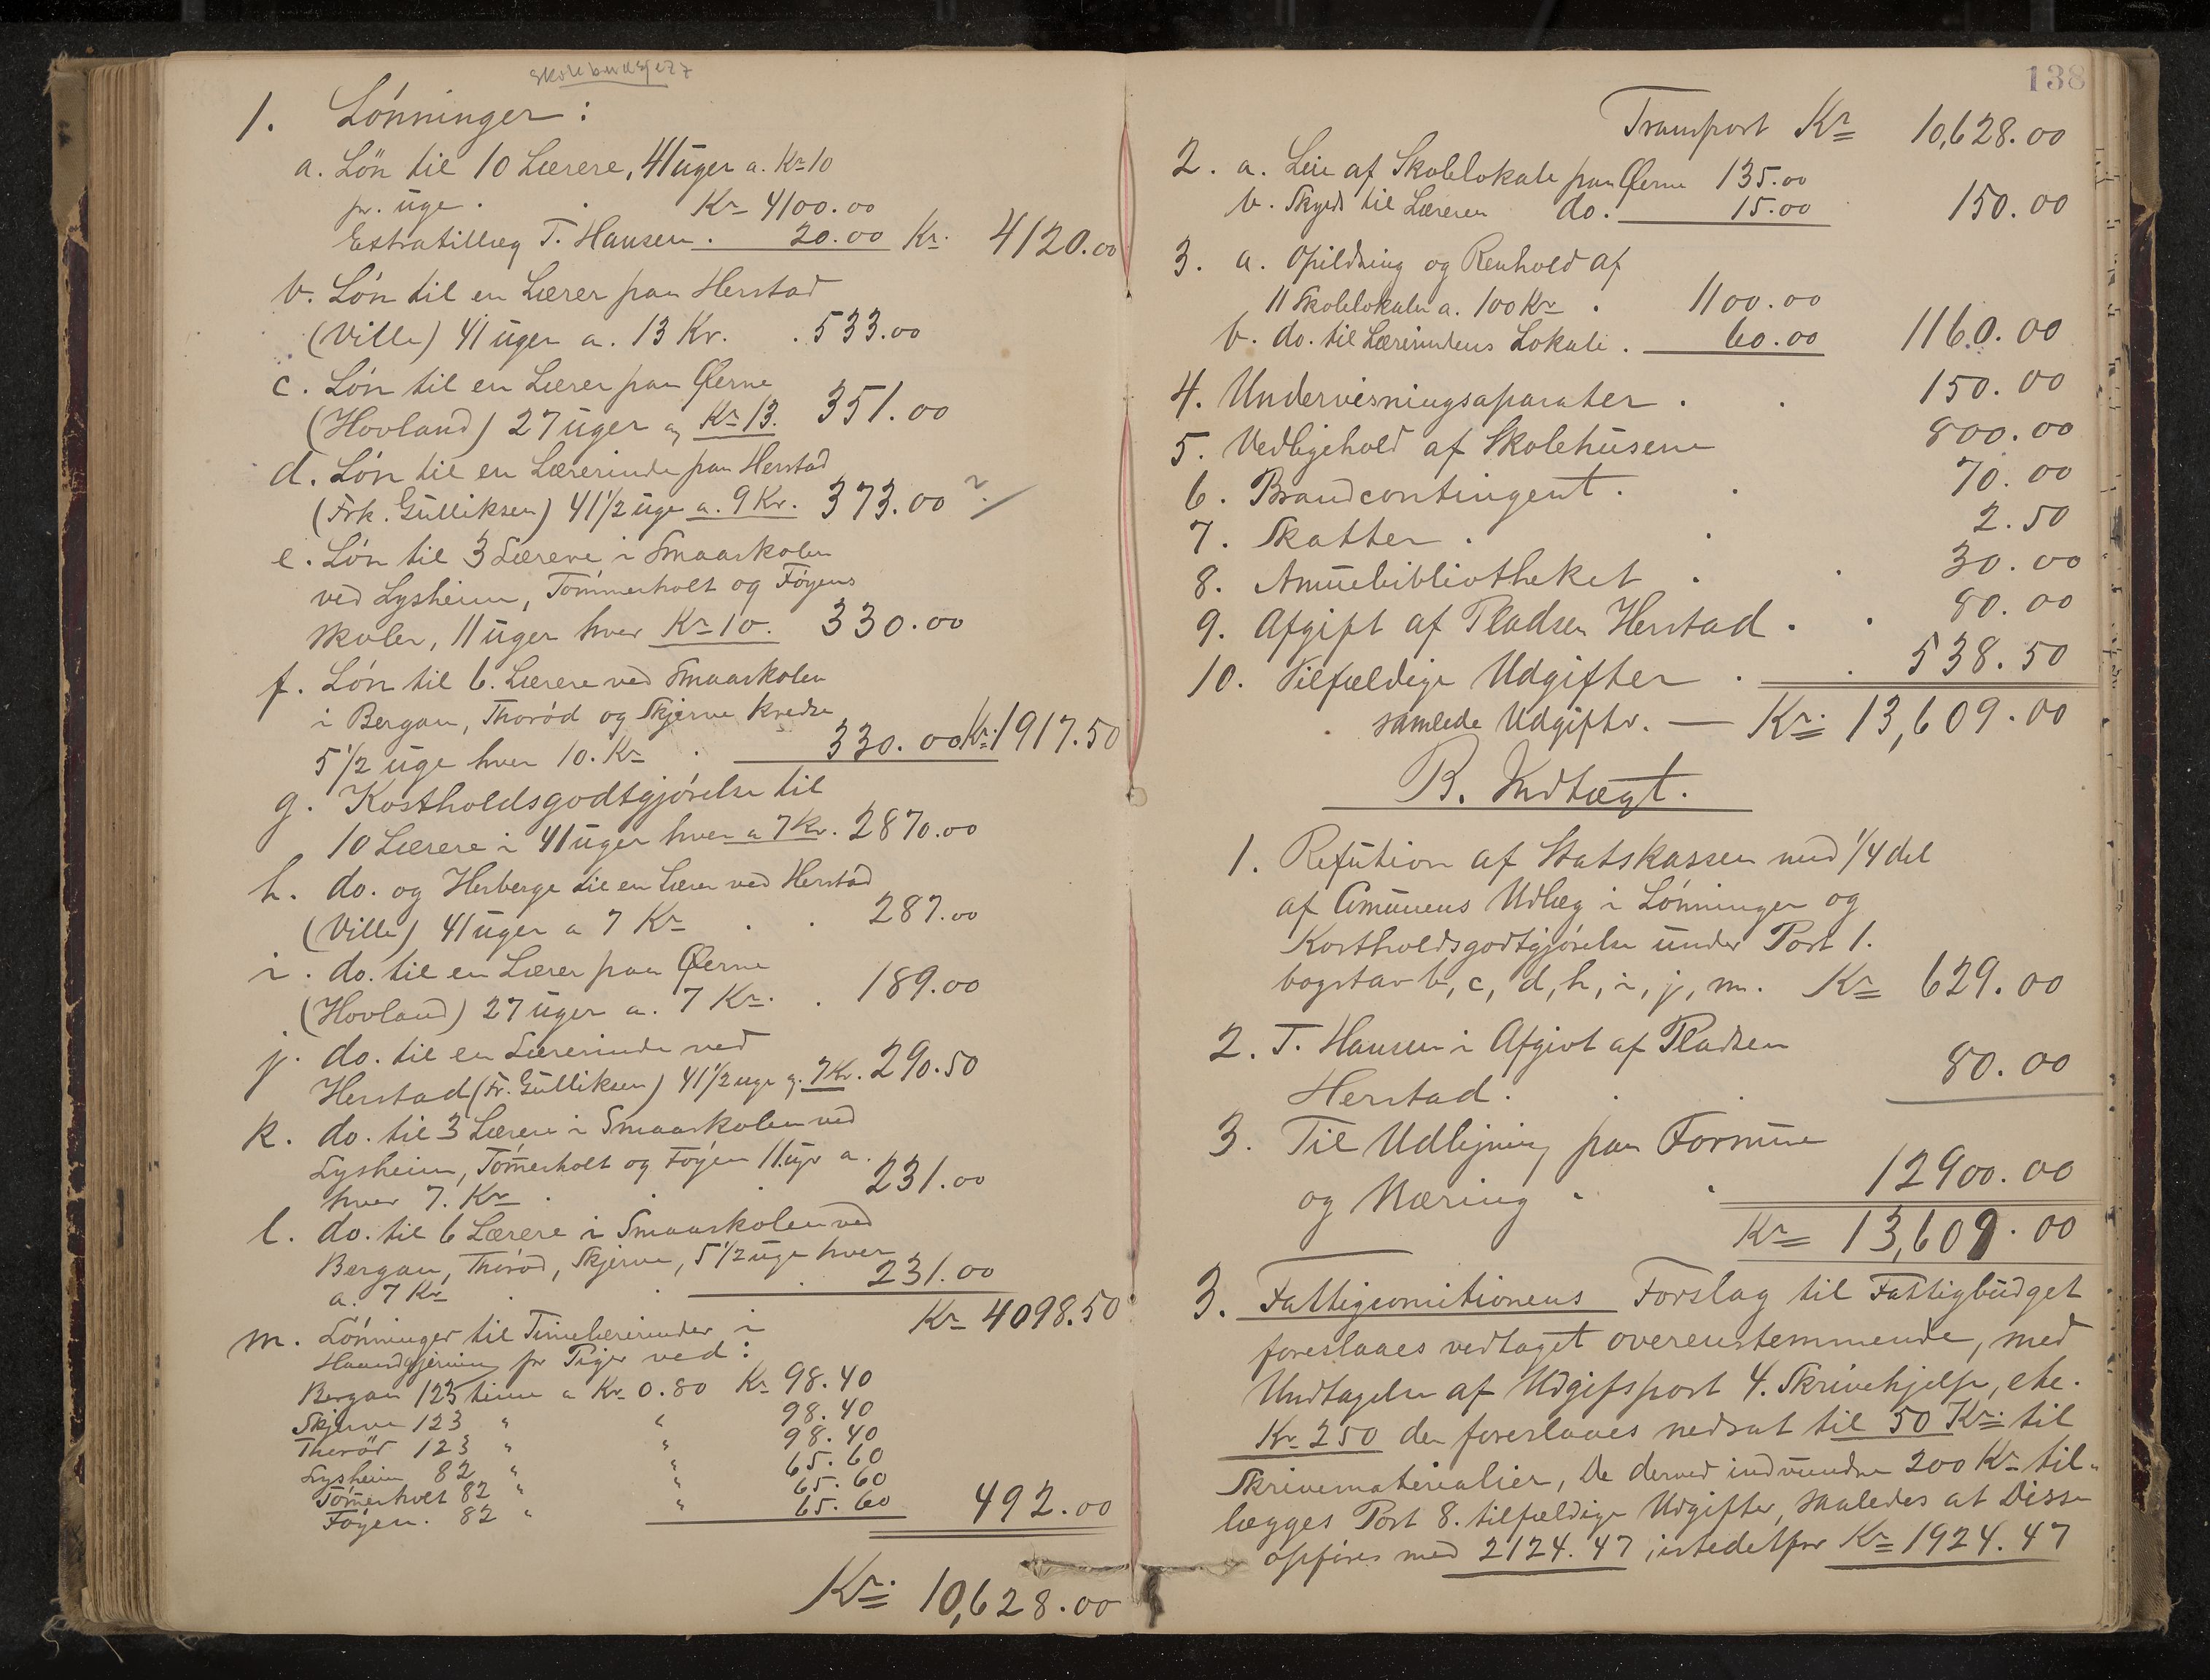 Skolebudget
1. Lönninger :
a. Lön til 10 Lærere, 41 uger a. Kr 10
pr. uge . . Kr 4100.00
Extratillæg T. Hansen . 20.00 Kr. 4120.00
b. Lön til en Lærer paa Herstad
(Ville) 41 uger a. 13 Kr. . 533.00
c. Lön til en Lærer paa Øerne
(Hovland) 27 uger a Kr 13. 351.00
d. Lön til en Lærerinde paa Herstad
(Frk. Gulliksen) 41 1/2 uge a. 9 Kr. 373.00
e. Lön til 3 Lærere i Smaaskolen
ved Lysheim, Tömmerholt og Föyens
skoler, 11 uger hver Kr 10. 330.00
f. Lön til 6. Lærere ved Smaaskolen
i Bergan, Thoröd og Skjerve Kredse
5 1/2 uge hver 10. Kr . 330.00 Kr. 1917.50
g. Kostholdsgodtgjörelse til
10 Lærere i 41 uger hver a 7 Kr. 2870.00
h. do. og Herberge til en Lærer ved Herstad
(Ville) 41 uger a 7 Kr . . 287.00
i. do. til en Lærer paa Øerne
(Hovland) 27 uger a. 7 Kr. . 189.00
j. do. til en Lærerinde ved
Herstad (Fr. Gulliksen) 41 1/2 uge a. 7 Kr. 290.50
k. do. til 3 Lærere i Smaaskolen ved
Lysheim, Tömerholt og Föyen 11. uger a.
hver 7. Kr . . . 231.00
l. do. til 6 Lærere i Smaaskolen ved
Bergan, Thoröd, Skjerve, 5 1/2 uge hver
a. 7 Kr . . . 231.00
Kr 4098.50
m. Lönninger til Timelærerinder i
Haandgjerning for Piger ved :
Bergan 123 time a Kr. 0.80 Kr 98.40
Skjerve 123 " " 98.40
Thoröd 123 " " 98.40
Lysheim 82 " " 65.60
Tömerholt 82 " " 65.60
Föyen. 82 " " 65.60 492.00
Kr. 10,628.00
138
Transport Kr 10,628.00
2. a. Leie af Skolelokale paa Øerne 135.00
b. Skyds til Læreren do. 15.00 150.00
3. a. Opildning og Renhold af
11 Skolelokaler a. 100 Kr . 1100.00
b. do. til Lærerindens Lokale . 60.00 1160.00
4. Undervisningsaparater . . 150.00
5. Vedligehold af Skolehusene 800.00
6. Brandcontingent . . 70.00
7. Skatter . . 2.50
8. Amuebibliotheket . . 30.00
9. Afgift af Pladsen Herstad . . 80.00
10. Tilfældige Udgifter . . 538.50
samlede Udgifter. — Kr. 13,609.00
B. Indtægt.
1. Refution af Statskassen med 1/4 del
af Comunens Udlæg i Lönninger og
Kostholdsgodtgjörelse under Post 1.
bogstav b, c, d, h, i, j, m. Kr 629.00
2. T. Hansen i Afgivt af Pladsen
Herstad . . . 80.00
3. Til Udligning paa Formue
og Næring . . 12900.00
Kr 13,609.00
3. Fattigcomitionens Forslag til Fattigbudget
foreslaaes vedtaget overenstemmende, med
Undtagelse af Udgifspost 4. Skrivehjelp, etc.
Kr 250 der foreslaaes nedsat til 50 Kr. til
Skrivematerialier, De derved indvundne 200 Kr til-
lægges Post 8. tilfældige Udgifter, saaledes at Disse
opföres med 2124.47, istedetfor Kr 1924.47